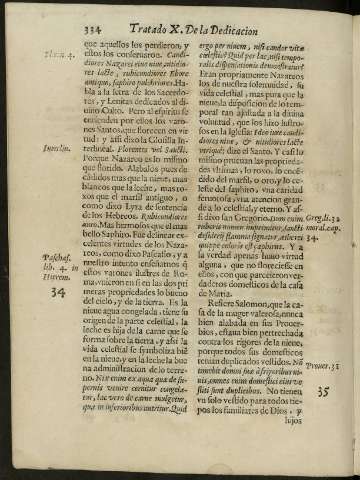 334 Tratado X. De la Dedicacion
que aquellos los perdieron, y
estos los conseruaron. Candi-
diores Nazarei eius niue, nitidio-
res lacte, rubicundiores Ebore
antiquo, saphiro pulchriores. Ha-
bla à la letra de los Sacerdo-
tes, y Leuitas dedicados al di-
uino Culto. Pero al espiritu se
entienden por ellos los varo-
nes Santos, que florecen en vir-
tud y assi dixo la Glossa In-
terlineal. Florentes vel Sancti.
Porque Nazareo es lo mismo
que florido. Alabalos pues de
candidos mas que la nieue, mas
blancos que la leche, mas ro-
xos que el marfil antiguo, o
como dixo Lyra de sentencia
de los Hebreos. Rubicundiores
auro. Mas hermosos que el mas
bello Saphiro. Fuè delinear ex-
celentes virtudes de los Naza-
reos, como dixo Pascasio, y a
nuestro intento enseñarnos q̃
estos varones ilustres de Ro-
ma, vnieron en si en las dos pri
meras propiedades lo bueno
del cielo, y de la tierra. Es la
nieue agua congelada, tiene su
origen de la parte celestial, la
leche es hija de la carne que se
forma sobre la tierra, y assi la
vida celestial se symboliza biẽ
en la nieue, y en la leche la bue
na administracion de lo terre-
no. Nix enim ex aqua quæ de su-
pernis venire cernitur congela-
tur, lac vero de carne mulgetur,
quæ in inferioribus nutritur. Quid
Thren. 4.
Interlin.
Paschas.
lib. 4. in
Hierem.
34
ergo per niuem, nisi candor vitæ
cælestis? Quid per lac, nisi tempo-
ralis dispensationis demonstratur?
Eran propriamente Nazareos
los de nuestra solemnidad, su
vida celestial, mas pura que la
nieue, la disposicion de lo tem-
poral tan ajustada a la diuina
voluntad, que los hizo lustro-
sos en la Iglesia: Ideo iure candi-
diores niue, & nitidiores lacte
dize el Santo. Y casi lo
mismo prueuan las propieda-
des vltimas, lo roxo, lo encẽ-
dido del marfil, o oro, y lo ce-
leste del saphiro, vna caridad
feruorosa, vna atencion gran-
de à lo celestial, y eterno. Y as-
si dixo san Gregorio, Dum enim
ruboris nomen imprimitur, sancti
desiderij flamma signatur, at cerei
quippe coloris est saphirus. Y a
la verdad apenas huuo virtud
alguna, que no floreciesse en
ellos, con que parecieron ver-
daderos domesticos de la casa
de Maria.
Refiere Salomon, que la ca-
sa de la muger valerosa, nunca
bien alabada en sus Prouer-
bios, estaua bien pertrechada
contra los rigores de la nieue,
porque todos sus domesticos
tenian duplicados vestidos. Nõ
timebit domui suæ à frigoribus ni-
uis, omnes enim domestici eius ve-
stiti sunt duplicibus. No tienen
vn solo vestido para todos tie-
pos los familiares de Dios, y
lujos
Greg. li. 32
moral. cap.
34.
Prouer. 31
35